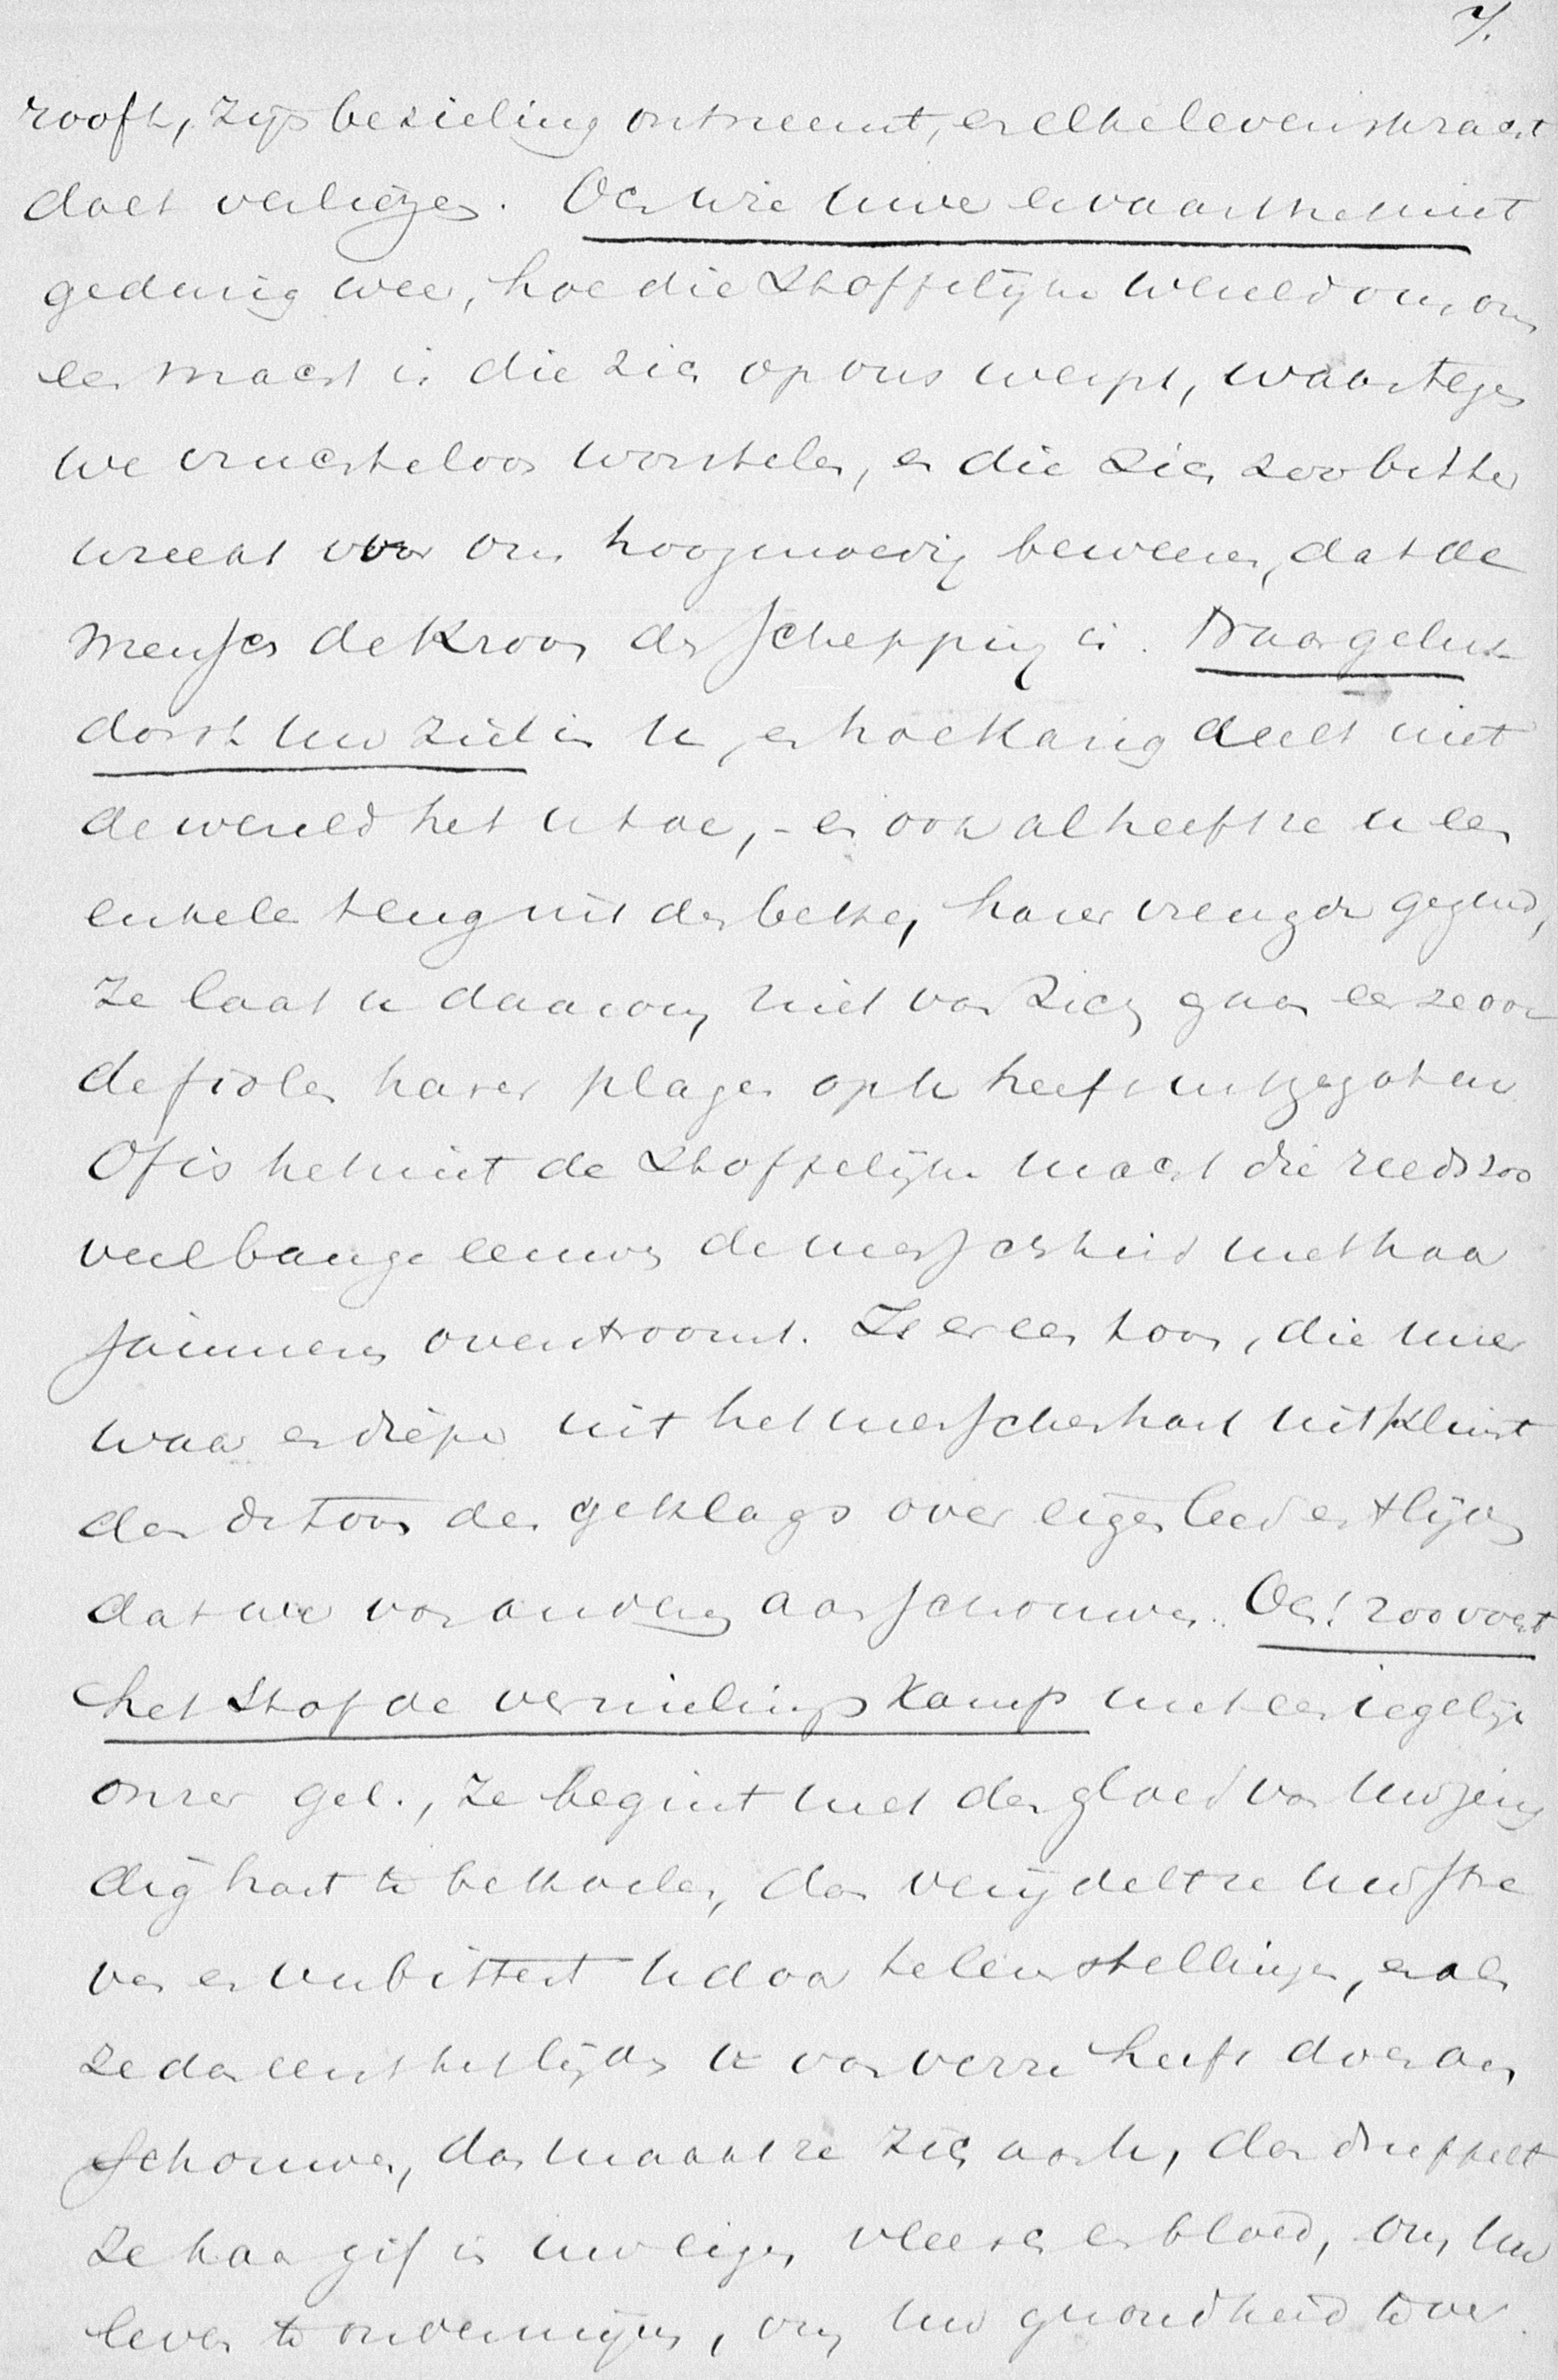 7.
rooft, zijn bezieling ontneemt, en elke levenskracht
doet verliezen. Och wie uwe ervaart het niet
gedurig weer, hoe die stoffelijke wereld om ons
een macht is die zich op ons werpt, waartegen
we vruchteloos worstelen, en die zich zoo bitter
wreekt voor ons hoogmoedig beweren, dat de
mensch de kroon der schepping is. Naar geluk
dorst uw ziel in u, en hoe karig deelt niet
de wereld het u toe, - en ook al heeft ze u een
enkele teug uit den beker harer vreugde gegund,
ze laat u daarom niet van zich gaan eer ze ook
de fiolen harer plagen op u heeft uitgegoten
Of is het niet de stoffelijke macht die reeds zoo
veel bange eeuwen de menschheid met haar
jammeren overstroomt. Is er een toon, die meer
waar en dieper uit het menschenhart uitklinkt
dan de toon des geklags over eigen leed en 't lijden
dat we van anderen aanschouwen. Och! zoo voert
het stof de vernielingskamp met een iegelijk
onzer gel., ze begint met den gloed van uw jeug
dig hart te bekoelen, dan verijdelt ze uw stre
ven en verbittert u door teleurstellingen, en als
ze dan eerst het lijden u van verre heeft doen aan
schouwen, dan maakt ze zich aan u, dan druppelt
ze haar gif in uw eigen vleesch en bloed, om uw
leven te ondermijnen, om uw gezondheid te ver